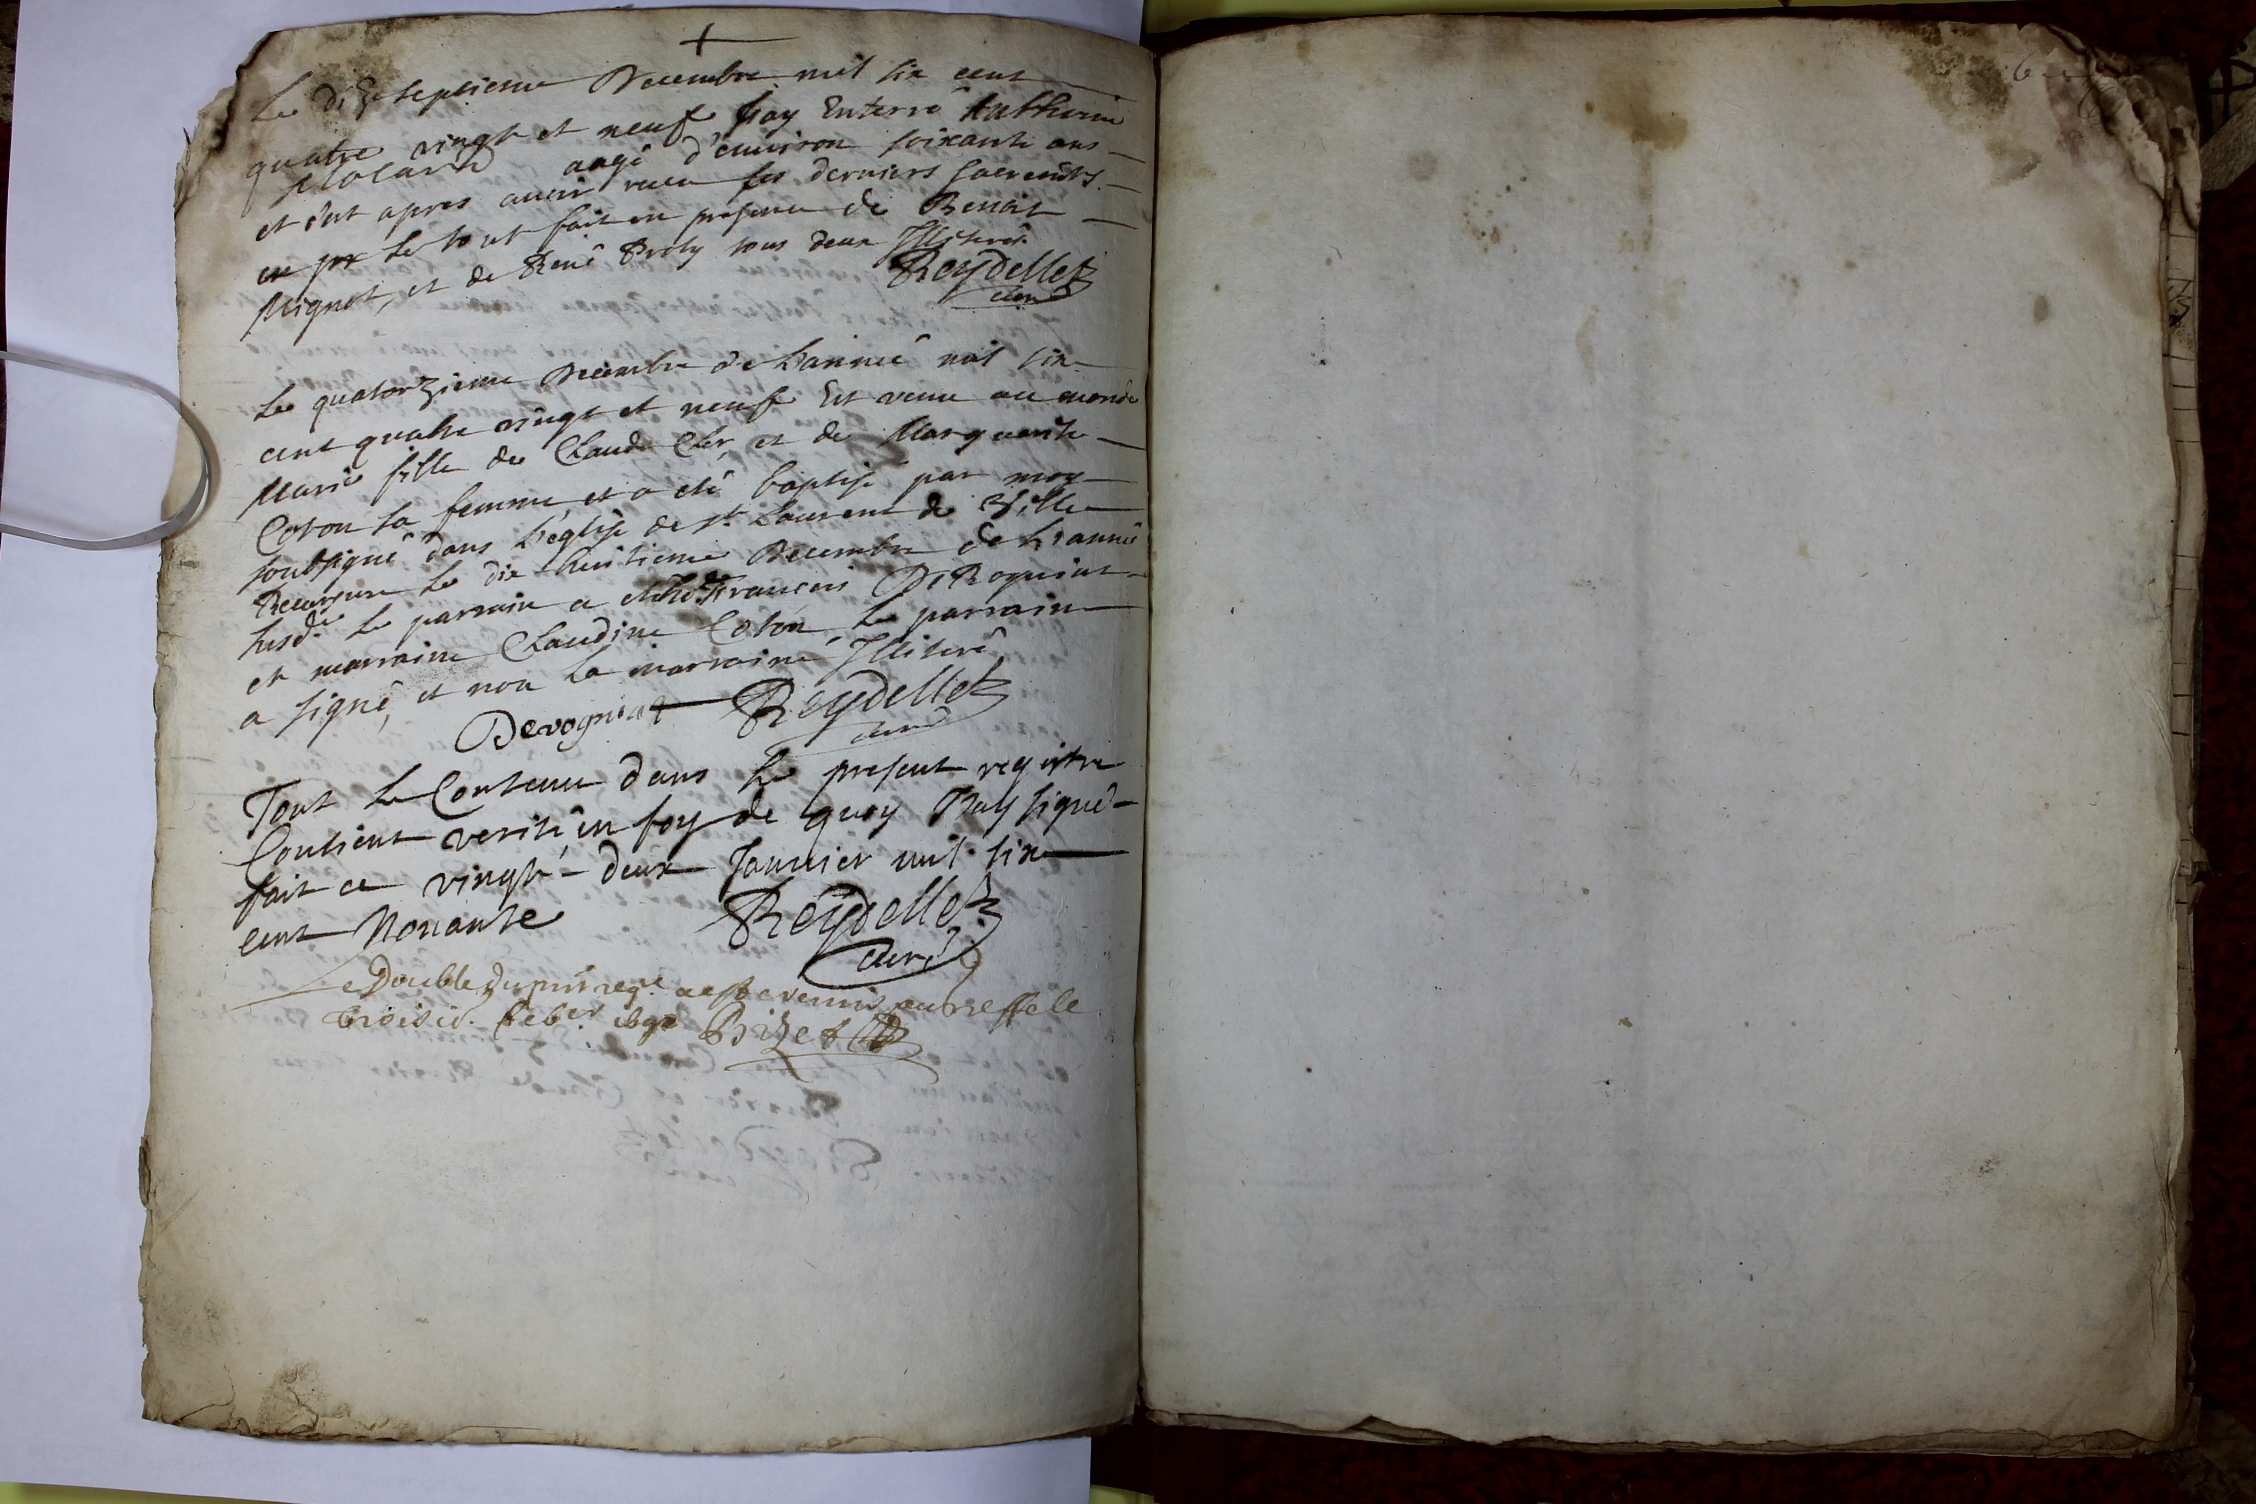 Le dixseptieme Decembre mil six cent
quatre vingt et neufe J'ay Enterré
aagé d'environ soixante ans
et c'est apres avoir receu ses derniers Sacremts
le tout fait en presence de Benoit
Mignot, et de René Proly tous deux Illiterés
Reydellet
curé
Le quatorzieme Decembre de L'année mil six
cent quatre vingt et neufe Est venu au monde
Marie fille de Claude Cler, et de Marguerite
Coton sa femme, et a eté baptisé par moy
soubsigné dans L'eglise de st Laurent de Ville
Reversure Le dix huitieme Decembre de L'année
susde Le parrain a été François DeRogniat
et marraine Claudine Coton Le parrain
a signé, et non La marraine Illiterée
Derogniat Reydellet
curé
Tout Le Contenu dans Le present registre
Contient verité, en foy de quoy J'ay signé
fait ce vingt-deux Janvier mil six
cent Nonante Reydellet
curé
Le Double du pnt regre a este remis au greffe le
Feber 1690 Bizet